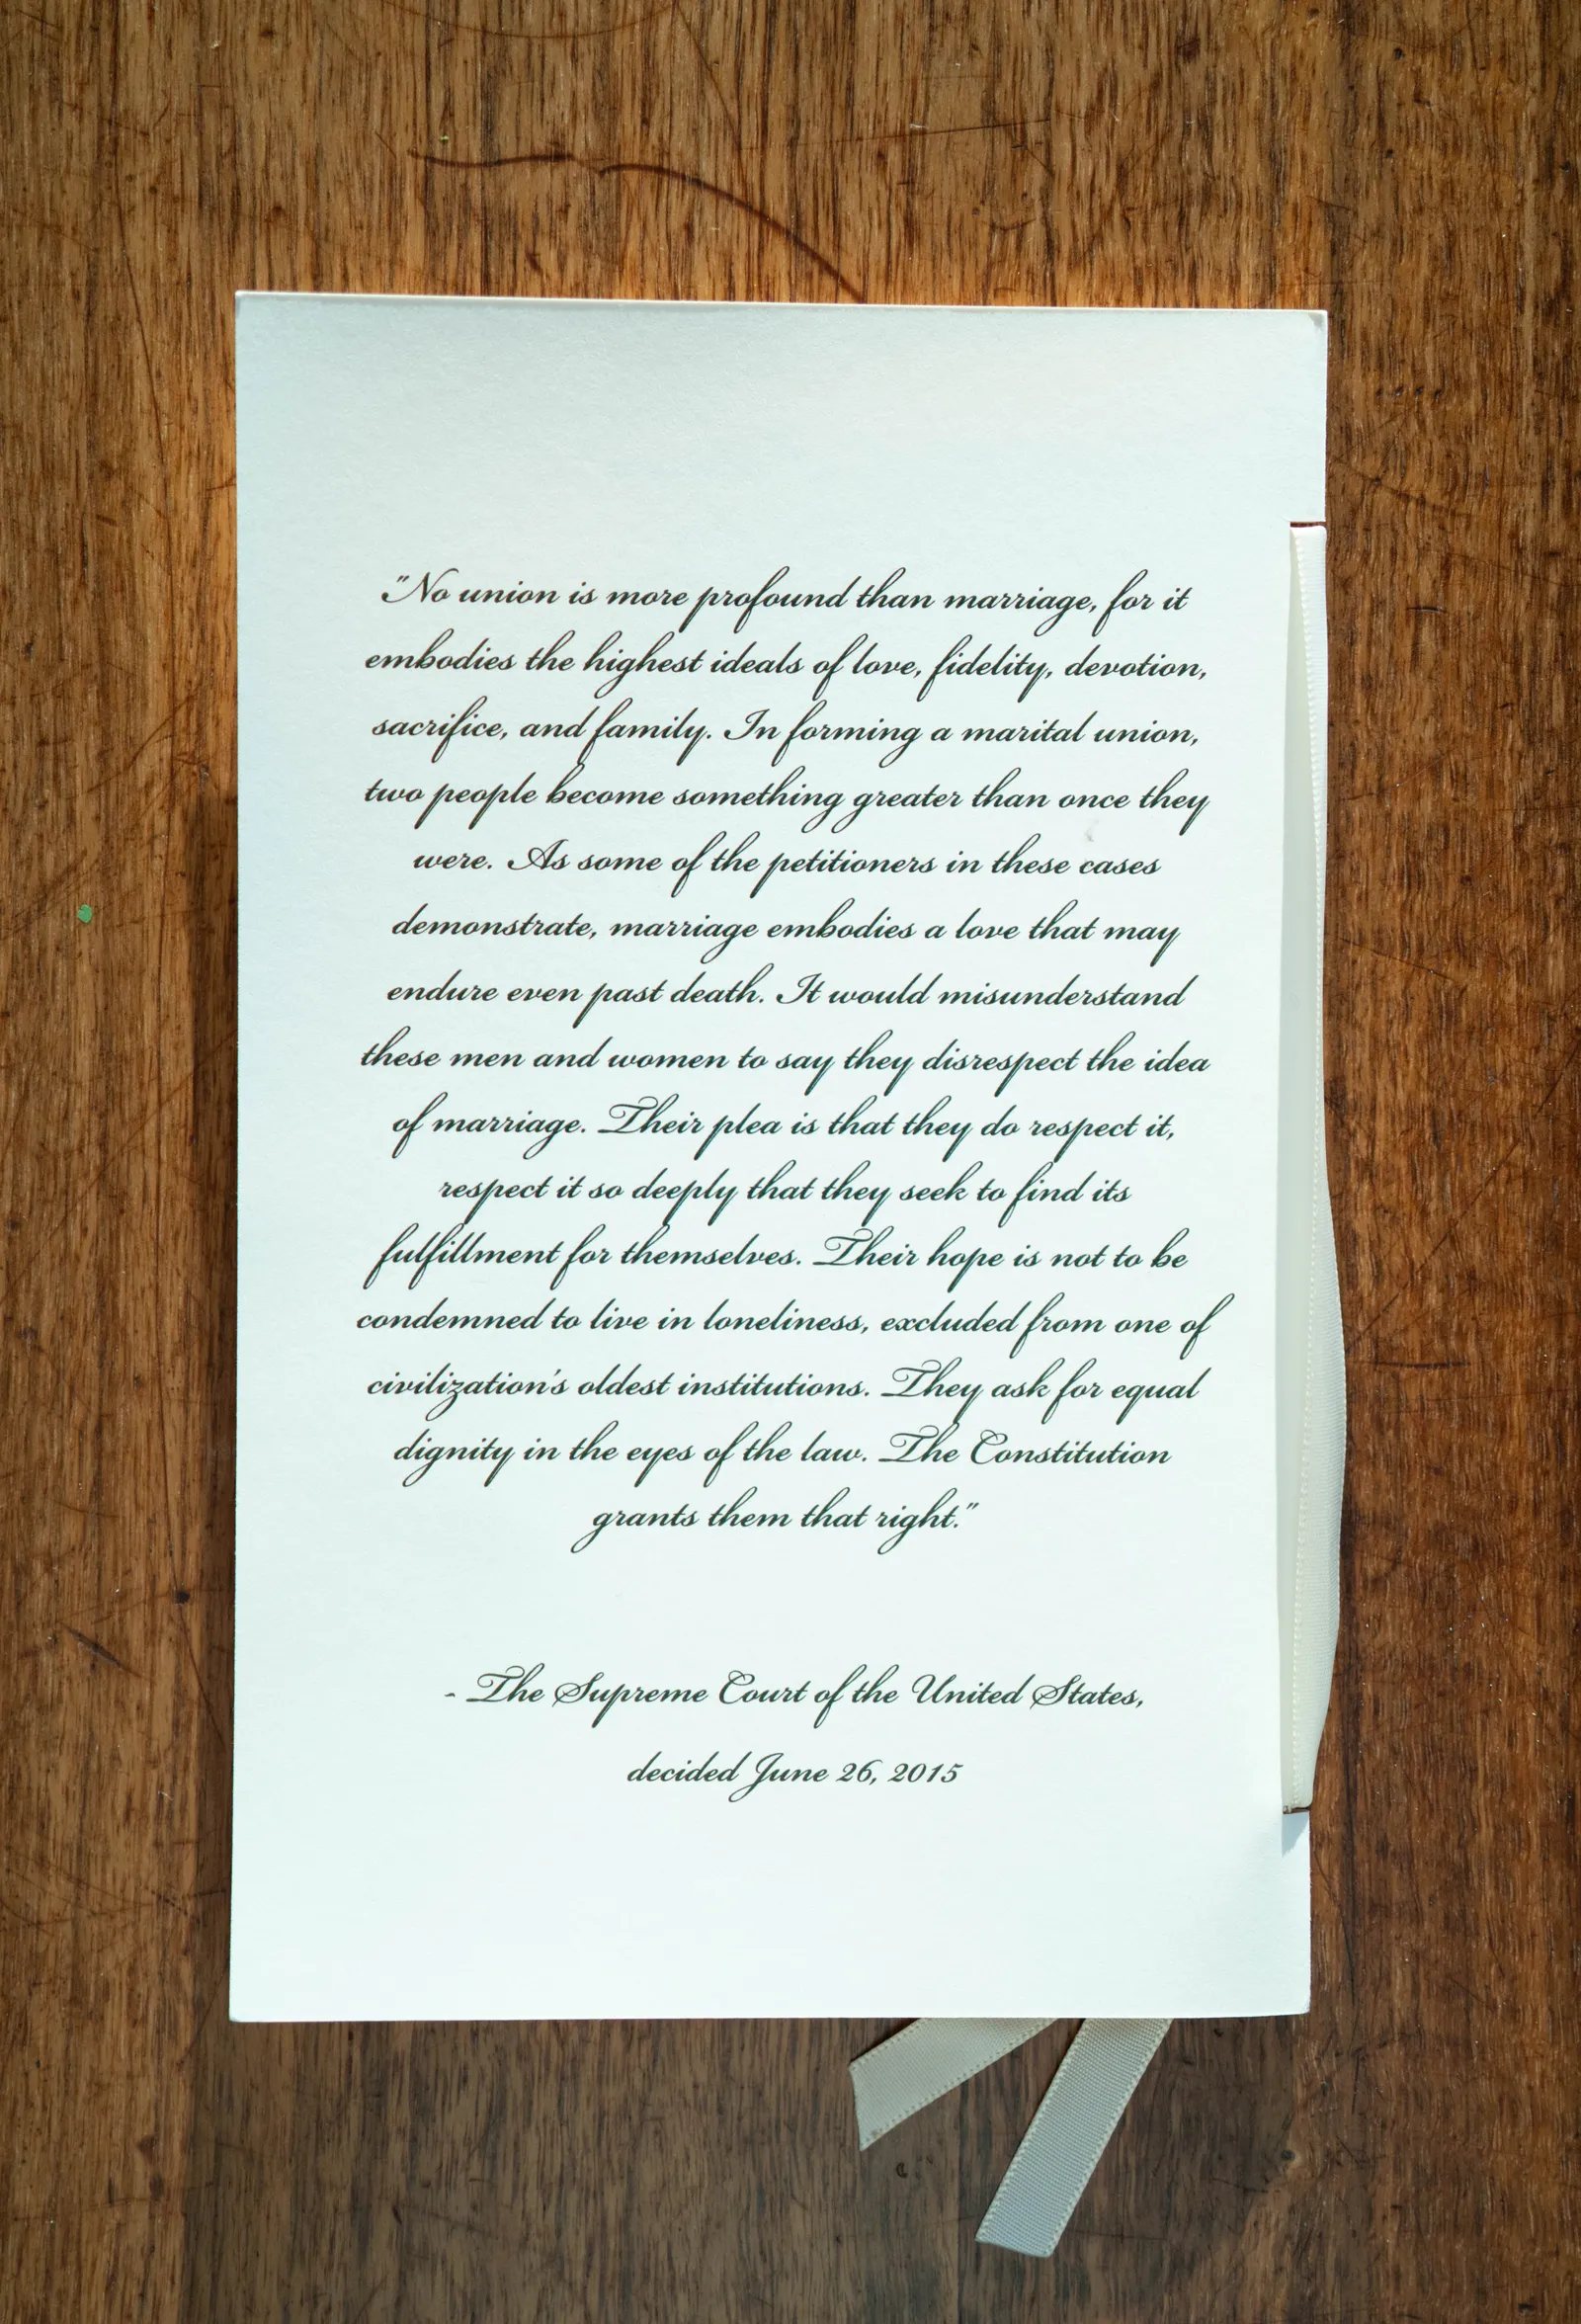 "No union is more profound than marriage, for it
embodies the highest ideals of love, fidelity, devotion,
sacrifice, and family. In forming a marital union,
two people become something greater than once they
were. As some of the petitioners in these cases
demonstrate, marriage embodies a love that may
endure even past death. It would misunderstand
these men and women to say they disrespect the idea
of marriage. Their plea is that they do respect it,
respect it so deeply that they seek to find its
fulfillment for themselves. Their hope is not to be
condemned to live in loneliness, excluded from one of
civilization's oldest institutions. They ask for equal
dignity in the eyes of the law. The Constitution
grants them that right."
- The Supreme Court of the United States,
decided June 26, 2015